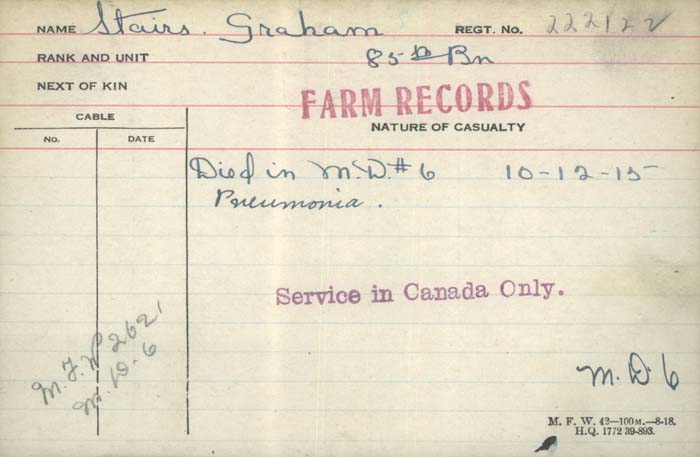 NAME Stairs. Graham REGT. No. 222122
RANK AND UNIT 85th Bn
NEXT OF KIN
FARM RECORDS
CABLE
NATURE OF CASUALTY
No. DATE
Died in M.D.#6 10-12-15
Pneumonia.
Service in Canada Only.
M.F.W 2621
M. D-6
M. D. 6
M. F. W. 42—100M.—8-18.
H.Q. 1772 39-893.